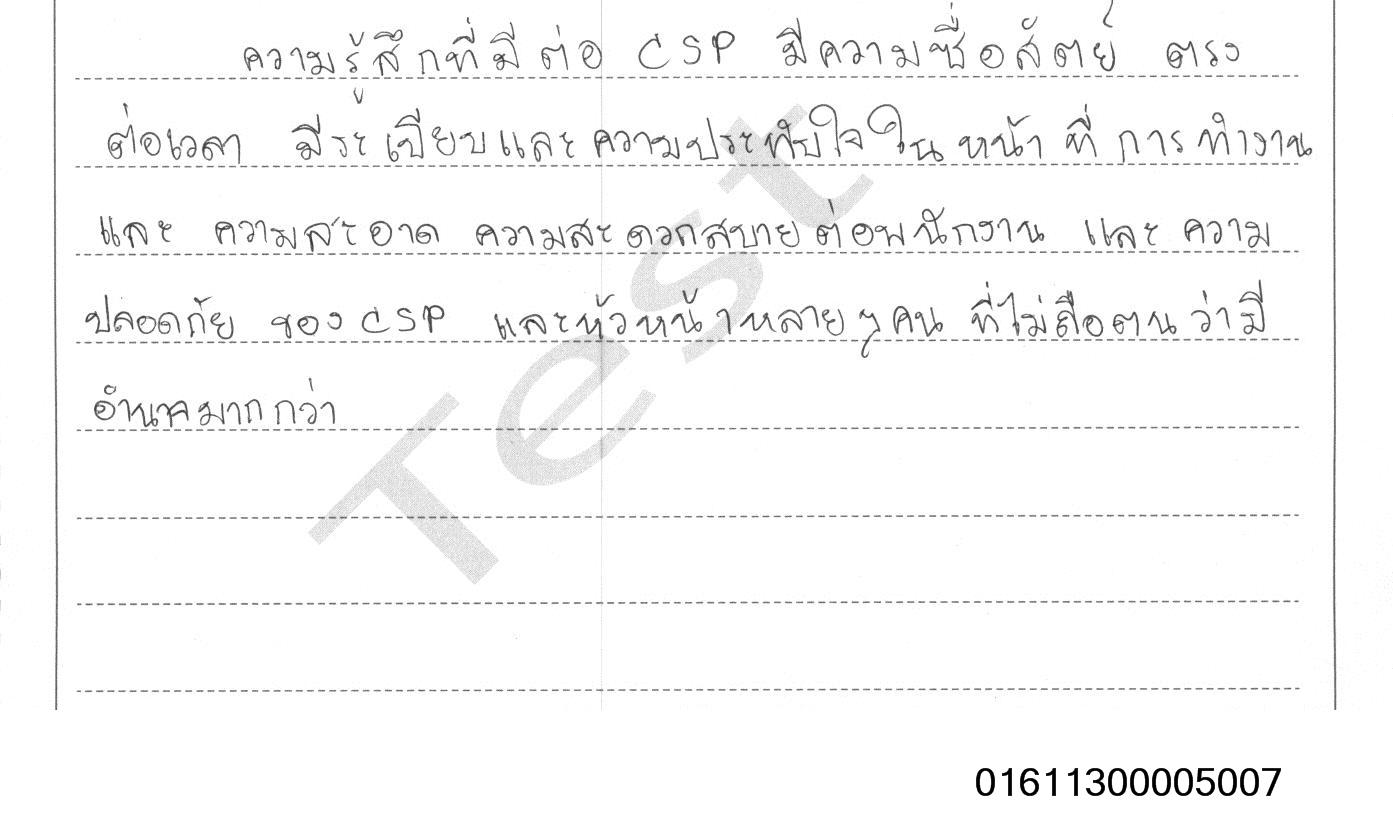 ความรู้สึกที่มีต่อ CSP มีความซื่อสัตย์ ตรง
ต่อเวลา มีระเบียบและความประทับใจในหน้าที่การทำงาน
และ ความสะอาด ความสะดวกสบายต่อพนักงาน และความ
ปลอดภัย ของ CSP และหัวหน้าหลายๆคน ที่ไม่ถือตนว่ามี
อำนาจมากกว่า
Test
01611300005007